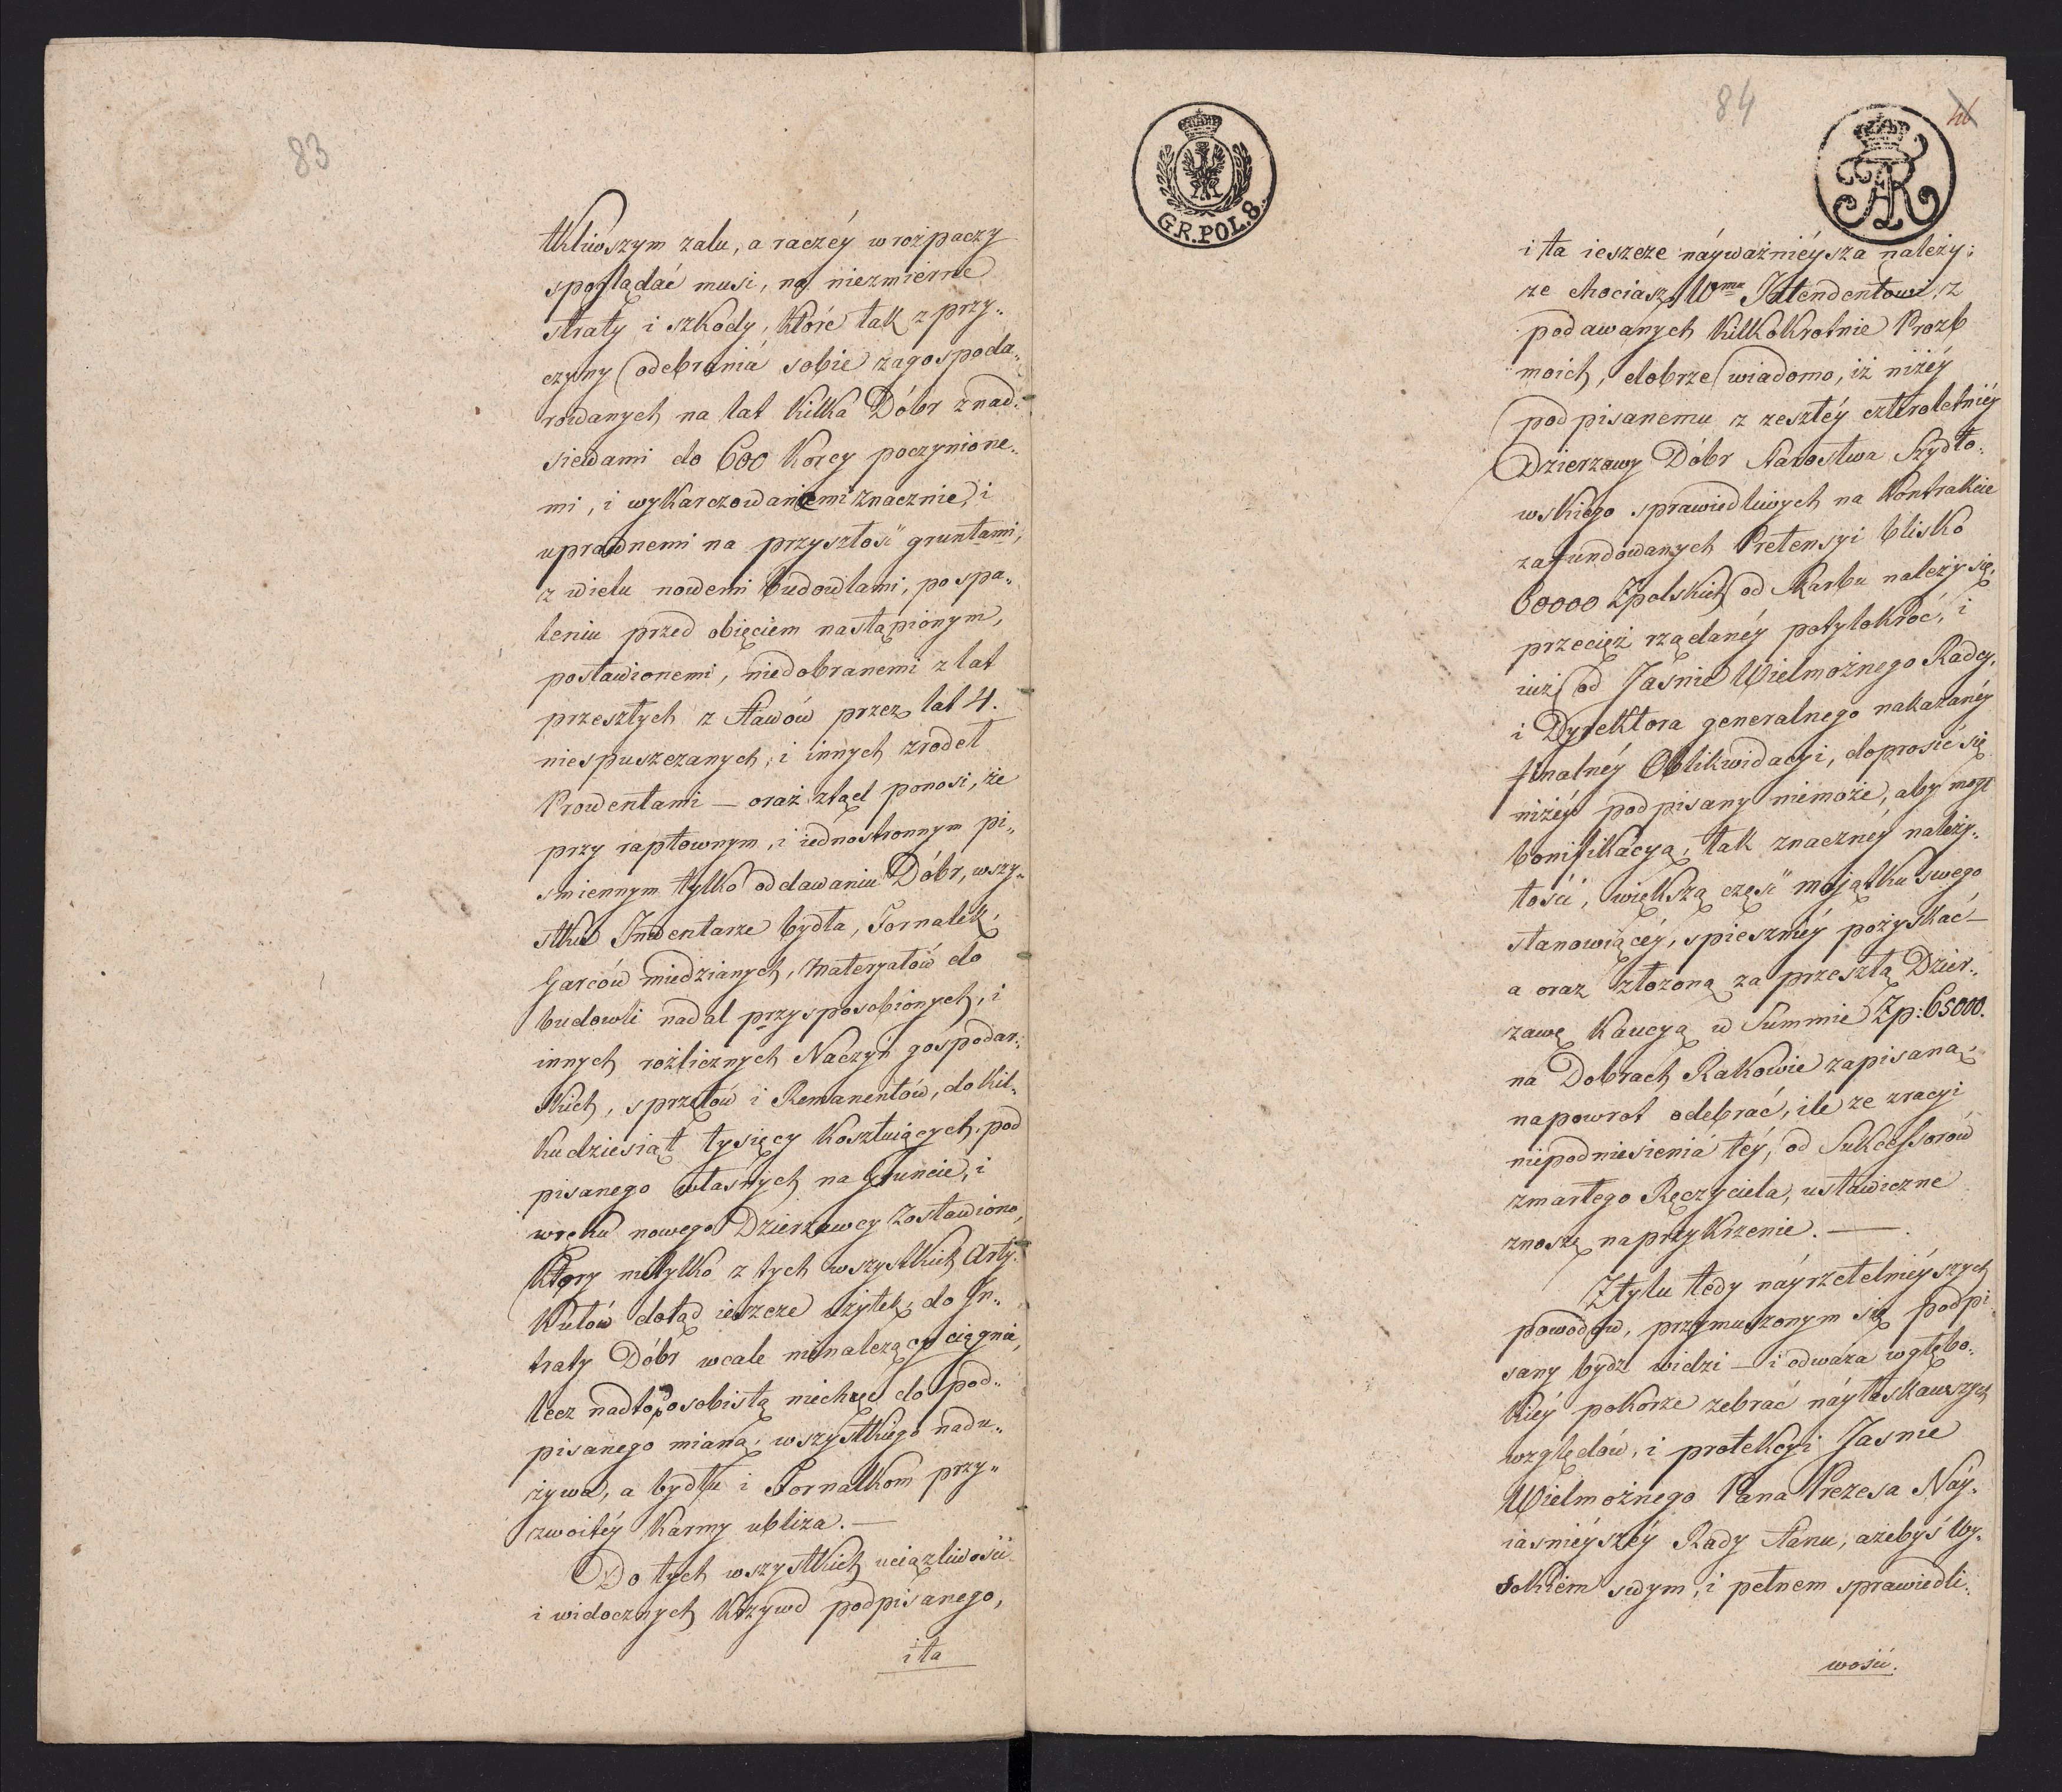 83
tkliwszym zalu, a raczéy w rozpaczy
spoglądać musi, na niezmierne
straty i szkody, które tak z przy„
czyny odebraniá sobie zagospoda„
rowanych na lat kilka Dóbr z nad„
siewami do 600 Korcy poczynione„
mi, i wykarczowanemi znacznie, i
uprawnemi na przyszłość gruntami,
z wielu nowemi budowlami, po spa„
leniu przed obięciem nastąpionym,
postawionemi, niedobranemi z lat
przeszłych z stawów przez lat 4.
niespuszczanych, i innych zrodeł
Prowentami — oraz ztąd ponosi, że
przy raptownym, i iednostronnym pi„
smiennym tylko oddawaniu Dóbr, wszy„
stkie Inwentarze bydła, Fornalek,
Garców miedzianych, Materyałów do
budowli nadal przysposobionych, i
innych rożlicznych Naczyń gospodar„
skich, sprzętów i Remanentów, do kil„
kudziesiąt tysięcy kosztuiących, pod
pisanego własnych na gruncie, i
w ręku nowego Dzierzawcy zostawiono,
Który nietylko z tych wszystkich Arty„
kułów dotąd ieszcze użytek, do In„
traty Dóbr wcale nienalezący ciągnie,
lecz nadto osobistą niechęc do pod„
pisanego mianą, wszystkiego nadu„
żywa, a bydłu i Fornalkom przy„
zwoitéy Karmy ubliza. —
Do tych wszystkich uciązliwości
i widocznych Krzywd podpisanego,
i ta
84
GR.POL.8.
i ta ieszcze náyważniéysza należy:
ze chociasz Wmu Intendentowi, z
podawanych kilkokrotnie Prozb
moich, dobrze wiadomo, iż niżéy
podpisanemu z zeszłéy czteroletniéy
Dzierzawy Dóbr Starostwa Szydło„
wskiego sprawiedliwych na Kontrakcie
zafundowanych Pretensyi blisko
60000 Zpolskich od Skarbu należy się,
przecięż rządanéy potylokroć, i
iuż od Jasnie Wielmożnego Radcy,
i Dyrektora generalnego nakazanéy
finalnéy Oblikwidacyi, doprosić się
niżéy podpisany niemoże, aby mógł
bonifikacyą, tak znacznéy należy„
tości, większą część maiątku swego
stanowiącéy, spieszniéy pożyskać —
a oraz złożoną za przeszłą Dzier„
zawę Kaucyą w Summie Zp: 65000.
na Dobrach Rakowie zapisaną,
napowrot odebrać, ile ze zracyi
niepodniesieniá téy, od Sukcessorow
zmarłego Ręczyciela, ustawiczne
znoszę naprzykrzenie. —
Z tylu tedy náyrzetelniéyszych
powodów, przymuszonym się podpi
sany bydz widzi — i odwaza w głębo„
kiéy pokorze zebrać náyłaskawszych
względów, i protekcyi Jasnie
Wielmożnego Pana Prezesa Náy„
iasniéyszéy Rady Stanu, ażebyś Wy„
sokiem swym, i pełnem sprawiedli„
wości.